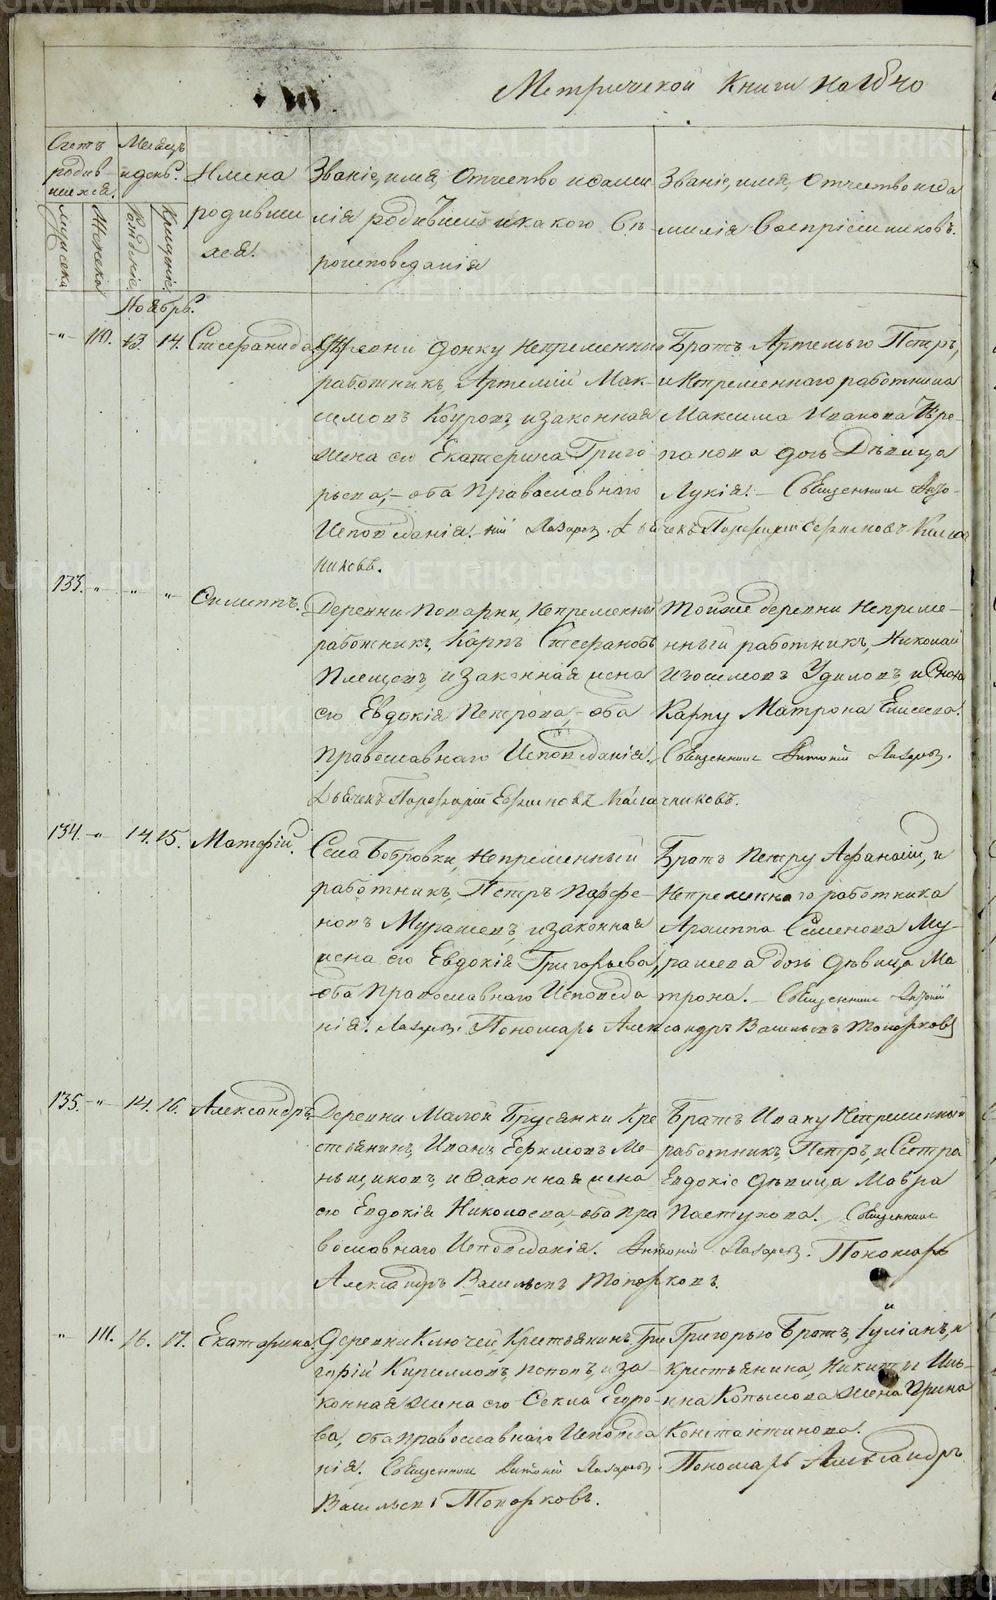 Метрической Книги на 18
Счетъ родив-шихся.
Мужеска
Женска
Месяцъ и день.
Рожденіе
Крещеніе
Имена родивши хся.
Званіе, имя, отчество и фами
лія родившей и какого Въ
роисповеданія
Званіе, имя, отчество и фа
милія Воспріемниковъ.
Ноябрь.
-"- 110. 13. 14. Стефанида
Деревни непременный
работникъ, Артемій Мак-
симовъ и законная
жена его Екатерина Григо
рьева, - оба Православнаго
Исповеданія. -ній Лазаревъ. Дьячекъ Порфирій Ефимовъ Кала
чниковъ.
Братъ Артемью Петръ,
и Непременнаго работника
Максима Иванова
дочь Девица
Лукія. - Священник Анто-
133. -"- -"- -"- Филиппъ.
Деревни Поварни, Непременный
работникъ, Карпъ Стефановъ
Плещевъ, и законная жена
его Евдокія Петрова, - оба
Православнаго Исповеданія.
Дьячекъ Порфирій Ефимовъ Калачниковъ.
Тойже деревни Непреме-
нный работникъ, Николай
Изосимовъ Удиловъ, и Сноха
Карпу Матрона Елисеева.
Священник Антоній Лазаревъ.
134. -"- 14. 15. Матфій.
Села Бобровки, Непременный
работникъ, Петръ Парфе-
новъ Мурашевъ, и законная
жена его Евдокія Григорьева,
оба Православнаго Исповеда
нія. Лазаревъ. Пономарь Александръ Васильевъ Топорковъ
Братъ Петру Афанасій, и
Непременнаго работника
Архиппа Семенова Му-
рашева дочь девица Ма
трона. - Священник Антоній
135. -"- 14. 16. Александръ
Деревни Малой Брусянки Кре
стьянинъ, Иванъ Ефимовъ Ме-
ньщиковъ, и Законная жена
его Евдокія Николаева, - оба Пра
вославнаго Исповеданія. Антоній Лазаревъ. Пономарь
Александръ Васильевъ Топорковъ.
Братъ Ивану Непременный
работникъ, Петръ, и Сестра
Евдокіе девица Мавра
Пастухова. Священник
-"- 111. 16. 17. Екатерина.
Деревни Ключей, Крестьянинъ Гри
горій Кириловъ, Поповъ, и за-
конная жена его Фекла Егоро-
ва, оба православнаго Исповеда
нія. Священник Антоній Лазаревъ. Пономарь Александръ
Васильевъ Топорковъ.
Григорью Братъ, Іуліанъ, и
крестьянина, Никиты Иль-
ина Копылова жена Ирина
Константинова.